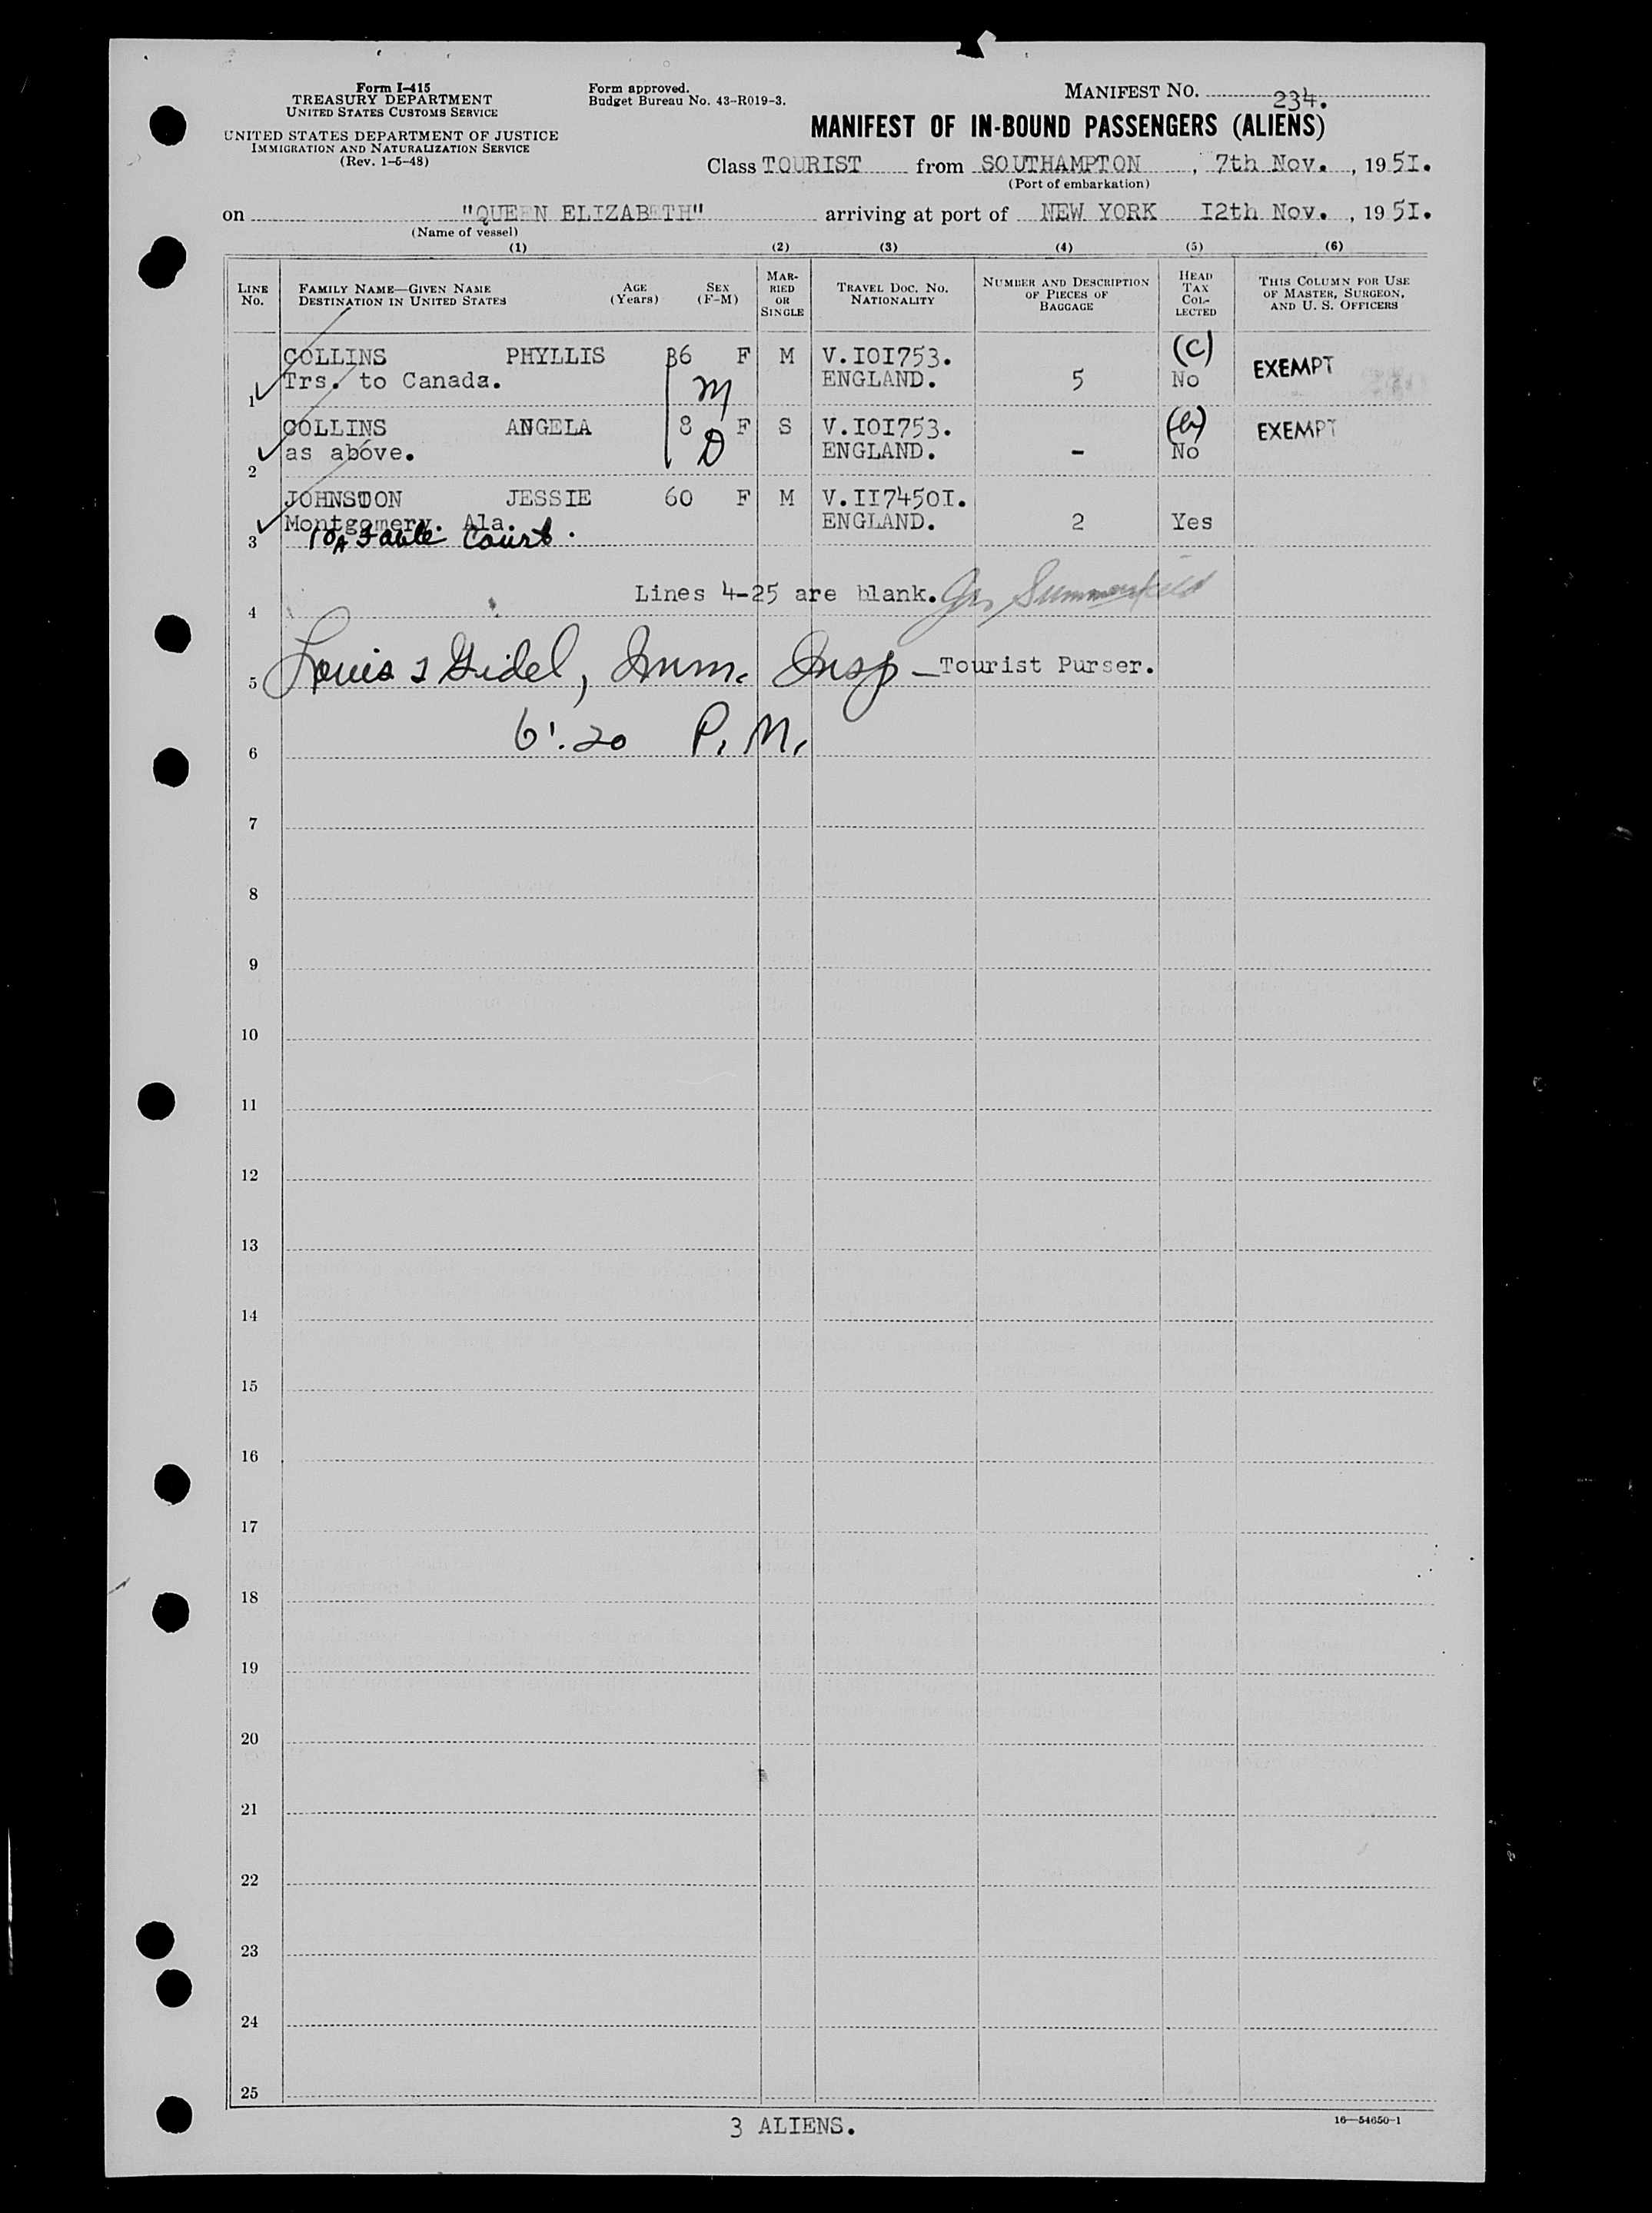 Form I-415
TREASURY DEPARTMENT
UNITED STATES CUSTOMS SERVICE
UNITED STATES DEPARTMENT OF JUSTICE
IMMIGRATION AND NATURALIZATION SERVICE
(Rev. 1-5-48)
Form approved.
Budget Bureau No. 43-R019-3.
MANIFEST NO. 234.
MANIFEST OF IN-BOUND PASSENGERS (ALIENS)
Class TOURIST from SOUTHAMPTON, 7th Nov., 1951.
(Port of embarkation)
on "QUEEN ELIZABETH" arriving at port of NEW YORK 12th Nov., 1951.
(Name of vessel)
(1) (2) (3) (4) (5) (6)
LINE No.
FAMILY NAME—GIVEN NAME
DESTINATION IN UNITED STATES
AGE (Years)
SEX (F-M)
MARRIED OR SINGLE
TRAVEL DOC. NO.
NATIONALITY
NUMBER AND DESCRIPTION OF PIECES OF BAGGAGE
HEAD TAX COLLECTED
THIS COLUMN FOR USE OF MASTER, SURGEON, AND U. S. OFFICERS
1 COLLINS PHYLLIS 36 F M V.I0I753. (C) EXEMPT
Trs. to Canada. M ENGLAND. 5 No
2 COLLINS ANGELA 8 F S V.I0I753. EXEMPT
as above. D ENGLAND. - No
3 JOHNSTON JESSIE 60 F M V.II7450I.
Montgomery. Ala. ENGLAND. 2 Yes
Court.
4 Lines 4-25 are blank. Summerfield
5 Louis Gidel, Imm. Insp — Tourist Purser.
6 6:20 P.M.
7
8
9
10
11
12
13
14
15
16
17
18
19
20
21
22
23
24
25
3 ALIENS.
16—54650-1